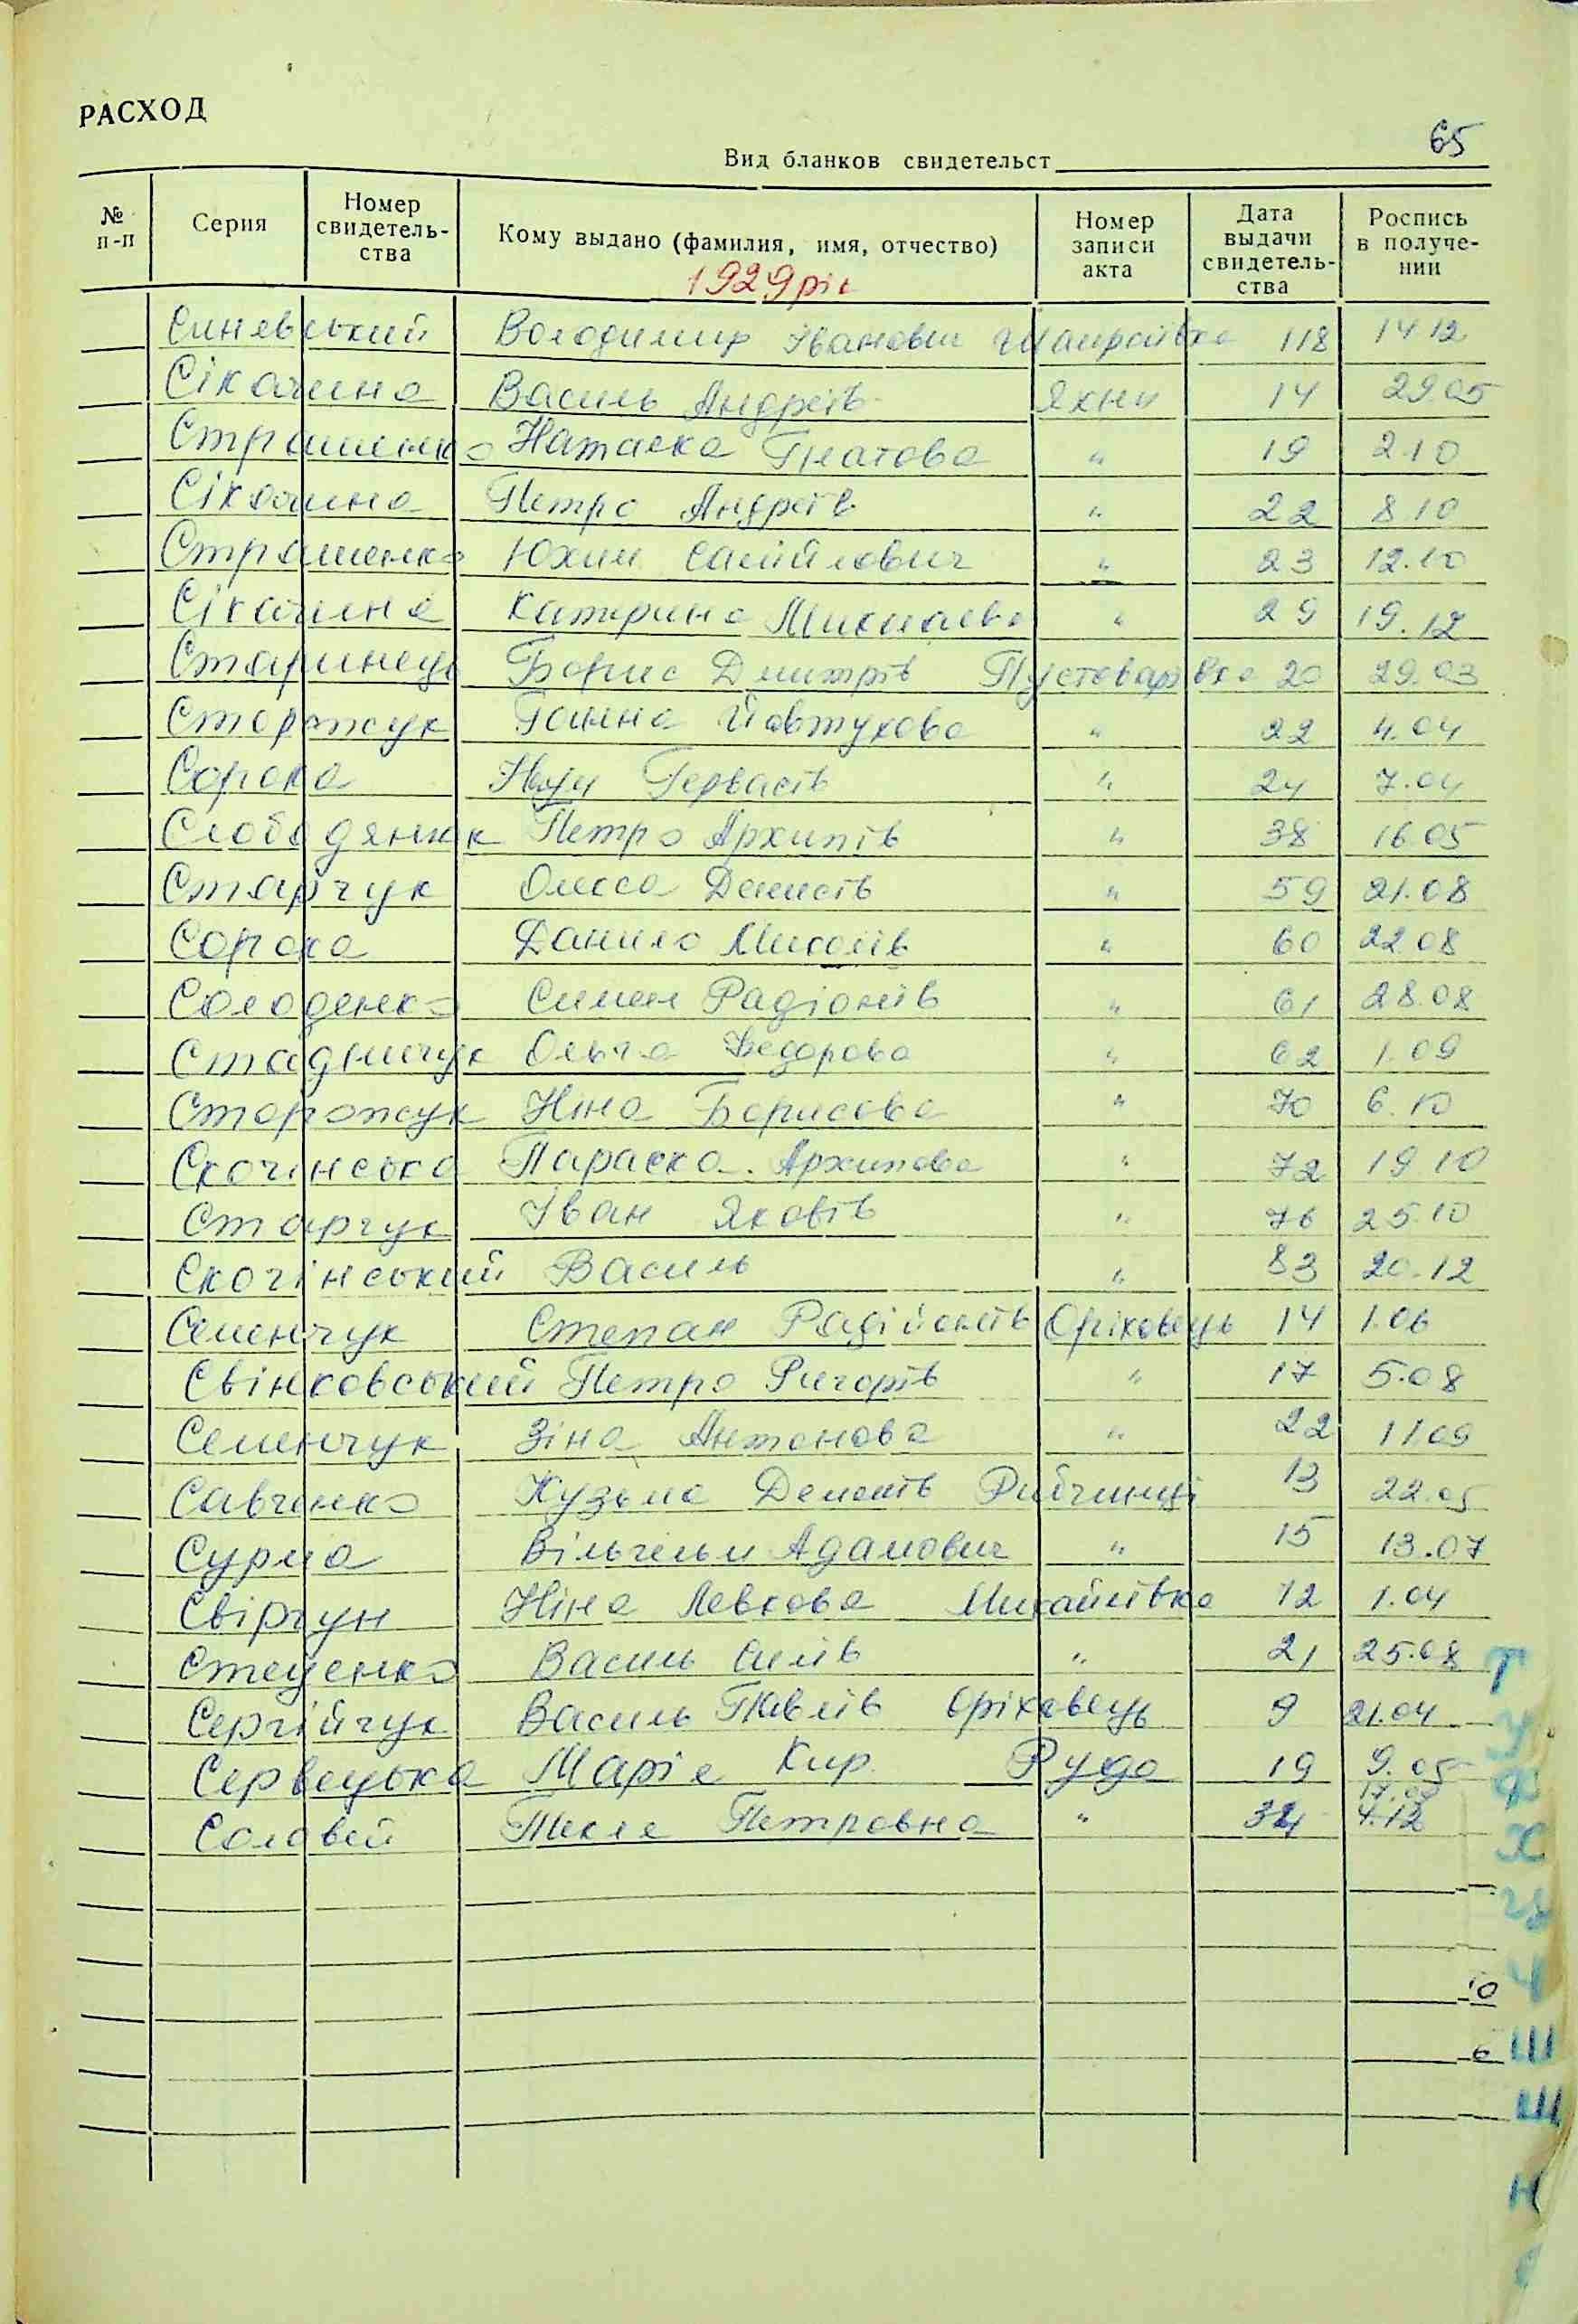 РАСХОД
65
Вид бланков свидетельст
№ п-п Серия Номер свидетель- ства Кому выдано (фамилия, имя, отчество) Номер записи акта Дата выдачи свидетель- ства Роспись в получе- нии
1929 рік
Синявський Володимир Іванович 118 14 12
Сікачина Василь Андріїв Яхни 14 29.05
Страшенко Наталка Гнатова " 19 2.10
Сікачина Петро Андріїв " 22 8.10
Страшенко Юхим Самійлович " 23 12.10
Сікачина Катерина Миколаєва " 29 19.12
Старинець Борис Дмитрів Пустоварівка 20 29.03
Сторожук Ганна Йовтухова " 22 4.04
Сорока Гервасів " 24 7.04
Слободянюк Петро Архипів " 38 16.05
Старчук Олекса Денисів " 59 21.08
Сорока Данило Миколів " 60 22 08
Солоденко Симен Радіонів " 61 28.08
Стадничук Ольга Федорова " 62 1.09
Сторожук Ніна Борисова " 70 6.10
Скочінська Параска Архипова " 72 19 10
Старчук Іван Яковів " 76 25.10
Скочінський Василь " 83 20.12
Семенчук Степан Радійонів Оріховець 14 1.06
Свінковський Петро Ригорів " 17 5.08
Семенчук Зіна Антонова " 22 11.09
Савченко Кузьма Демонів Рибчинці 13 22.05
Сурма Вільгельм Адамович " 15 13.07
Свіргун Ніна Левкова Михайлівка 12 1.04
Стеценко Василь Силів " 21 25.08
Сергійчук Василь Павлів Оріховець 9 21.04
Сервецька Марія Кир. Руда 19 9.05
Соловей Текля Петровна " 34 4.12
10
6
Т
У
Ф
Х
Ч
Ш
Щ
Н